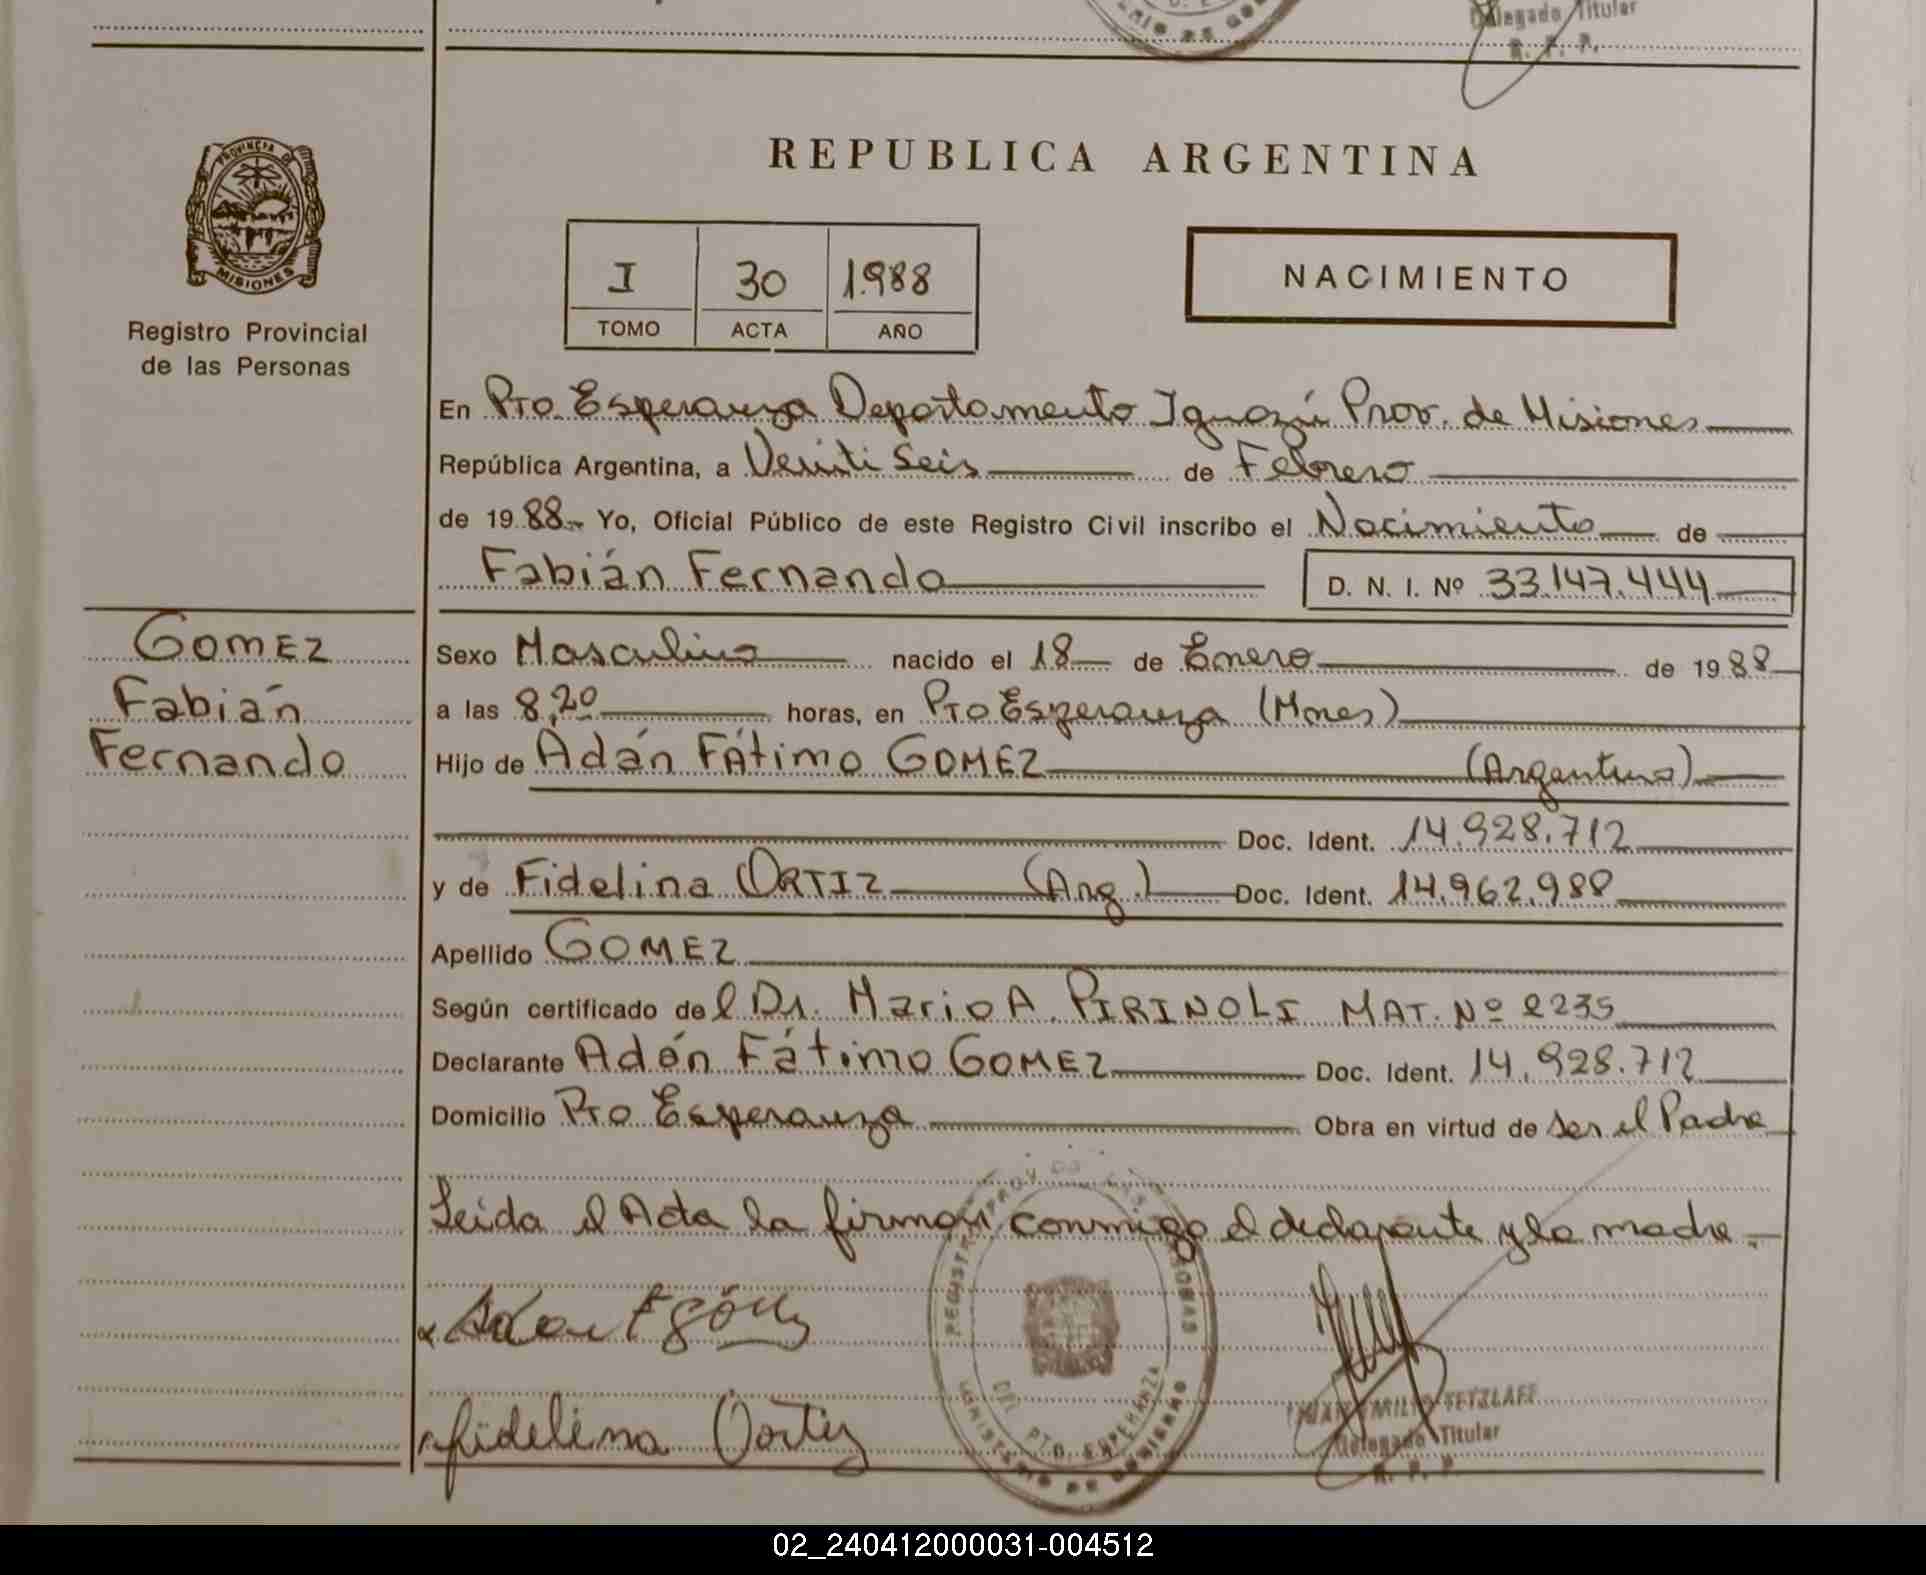 Delegado Titular
R. P. P.
PROVINCIA DE
MISIONES
Registro Provincial
de las Personas
REPUBLICA ARGENTINA
I 30 1.988
TOMO ACTA AÑO
NACIMIENTO
En Pto. Esperanza Departamento Iguazú Prov. de Misiones
República Argentina, a Veinti Seis de Febrero
de 1988 Yo, Oficial Público de este Registro Civil inscribo el Nacimiento de
Fabián Fernando D. N. I. Nº 33.147.444
GOMEZ
Fabián
Fernando
Sexo Masculino nacido el 18 de Enero de 1988
a las 8,20 horas, en Pto Esperanza (Mnes)
Hijo de Adán Fátimo GOMEZ (Argentino)
Doc. Ident. 14.928.712
y de Fidelina ORTIZ (Arg.) Doc. Ident. 14.962.988
Apellido GOMEZ
Según certificado del Dr. Mario A. PIRINOLI MAT. Nº 2235
Declarante Adán Fátimo GOMEZ Doc. Ident. 14.928.712
Domicilio Pto Esperanza Obra en virtud de ser el Padre
Leida el Acta la firman conmigo el declarante y la madre.-
REGISTRO PROV DE LAS PERSONAS
DEL PTO. ESPERANZA
MINISTERIO DE GOBIERNO
fidelina Oortiz
JUAN EMILIO TETZLAFF
Delegado Titular
R. P. P.
02_240412000031-004512